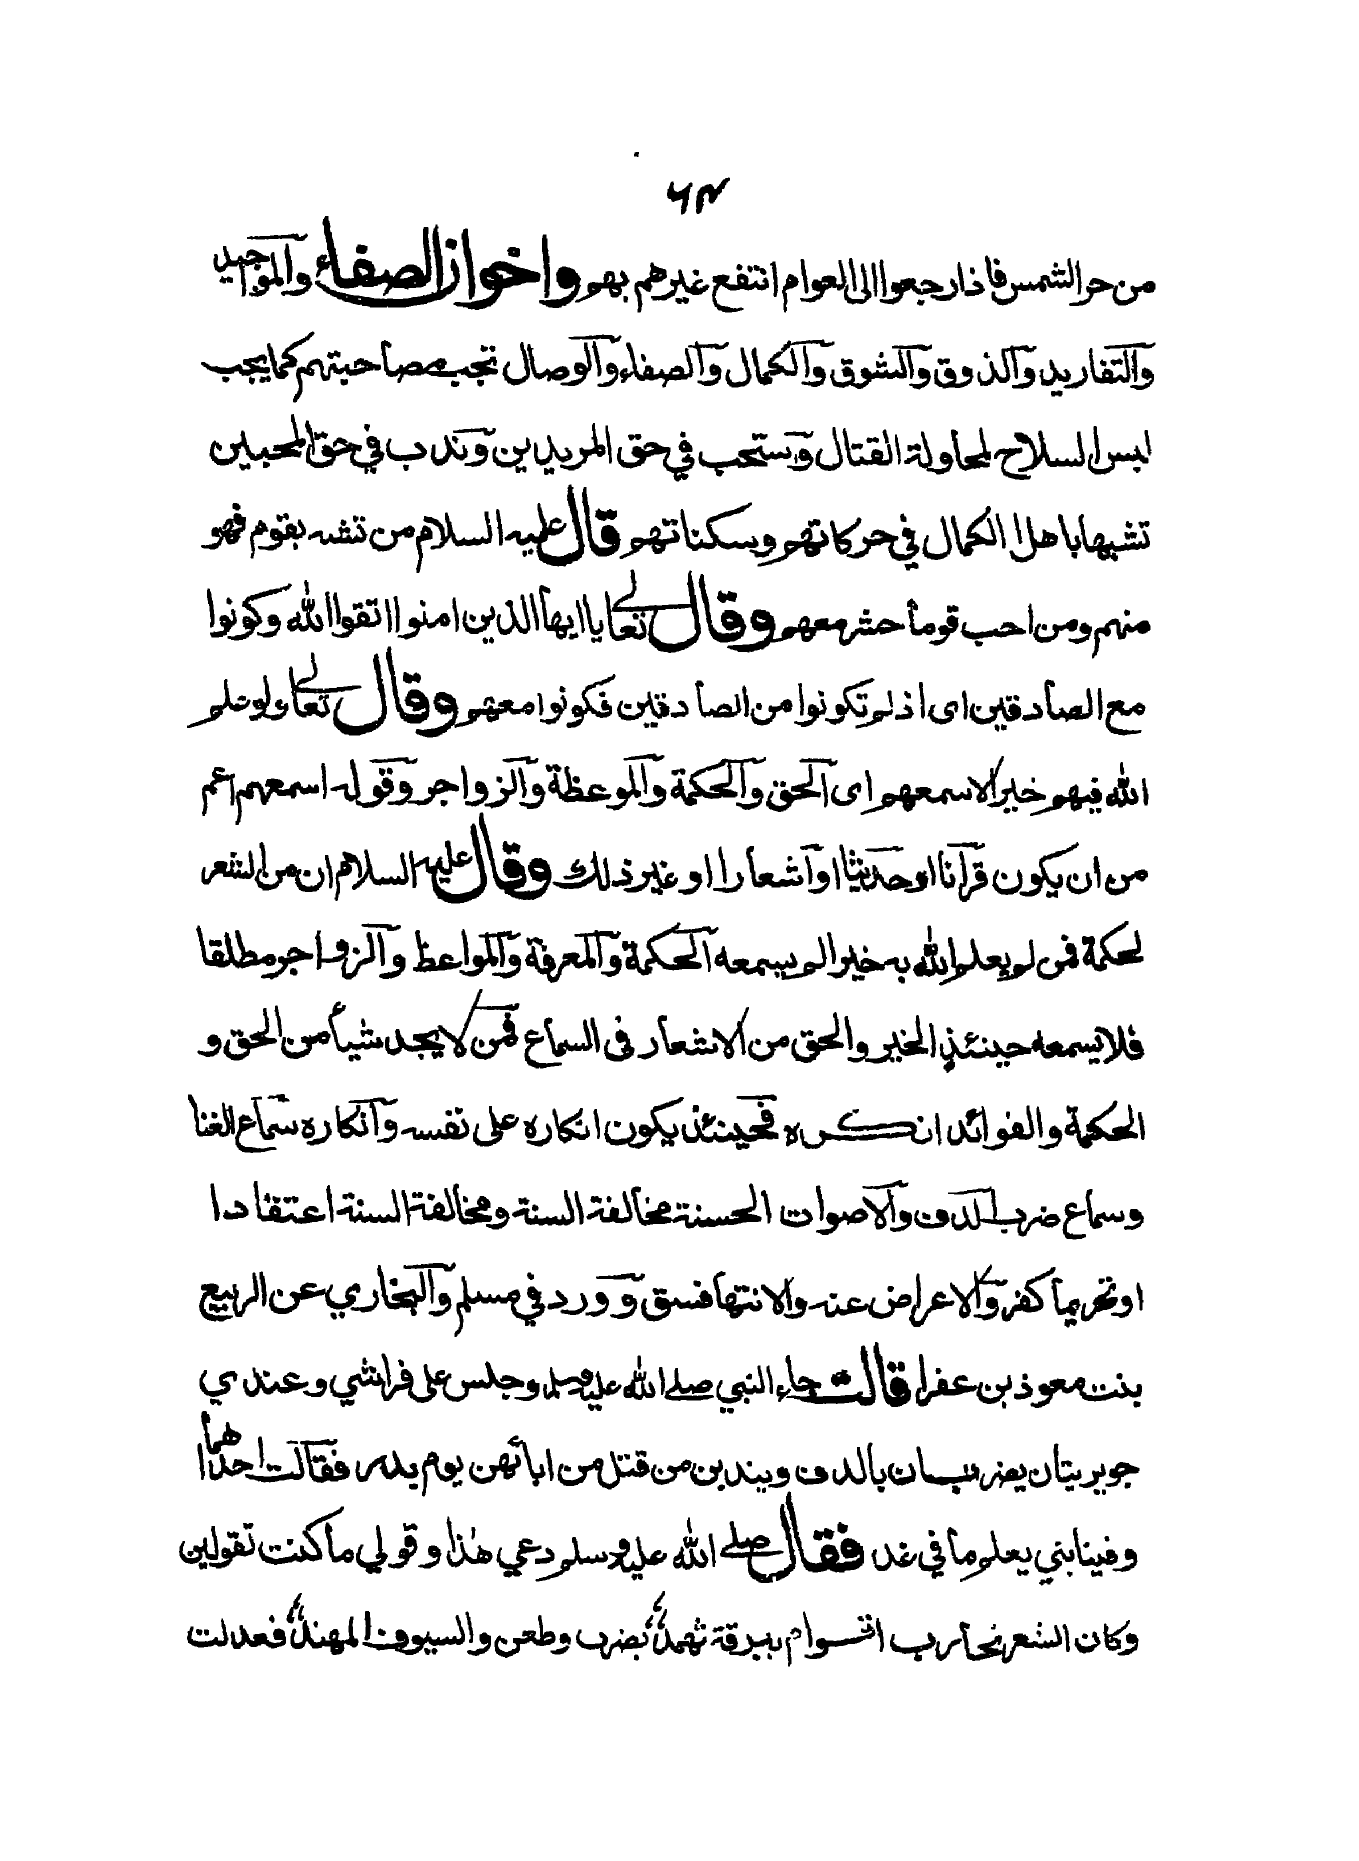 ٦٣
من حر الشمس فاذا رجعوا الى العوام انتفع غيرهم بهم واخوان الصفاء والمواجيد
والتفاريد والذوق والشوق والكمال والصفاء والوصال تجب مصاحبتهم كما يجب
لبس السلاح لمحاولة القتال ويستحب في حق المريدين وندب في حق المحبين
تشبها باهل الكمال في حركاتهم وسكناتهم قال عليه السلام من تشبه بقوم فهو
منهم ومن احب قوما حشر معهم وقال تعالى يا ايها الذين امنوا اتقوا الله وكونوا
مع الصادقين اى اذ لم تكونوا من الصادقين فكونوا معهم وقال تعالى ولو علم
الله فيهم خيرا لاسمعهم اى الحق والحكمة والموعظة والزواجر وقوله اسمعهم اعم
من ان يكون قرآنا او حديثا او اشعارا او غير ذلك وقال عليه السلام ان من الشعر
لحكمة فمن لم يعلم الله به خيرا لم يسمعه الحكمة والمعرفة والمواعظ والزواجر مطلقا
فلا يسمعه حينئذ الخير والحق من الاشعار فى السماع فمن لا يجد شيأ من الحق و
الحكمة والفوائد ان كره فحينئذ يكون انكاره على نفسه وانكاره سماع الغنا
وسماع ضرب الدف والاصوات الحسنة مخالفة السنة ومخالفة السنة اعتقادا
او تحريما كفر والاعراض عنه والانتها فسق وورد في مسلم والبخاري عن الربيع
بنت معوذ بن عفرا قالت جاء النبي صلى الله عليه وسلم وجلس على فراشي وعندي
جويريتان يضربان بالدف ويندبن من قتل من ابائهن يوم بدر فقالت احدهما
وفينا نبي يعلم ما فى غد فقال صلى الله عليه وسلم دعي هذا وقولي ما كنت تقولين
وكان الشعر نحارب اقوام ببرقة ثهمد بضرب وطعن والسيوف المهند فعدلت